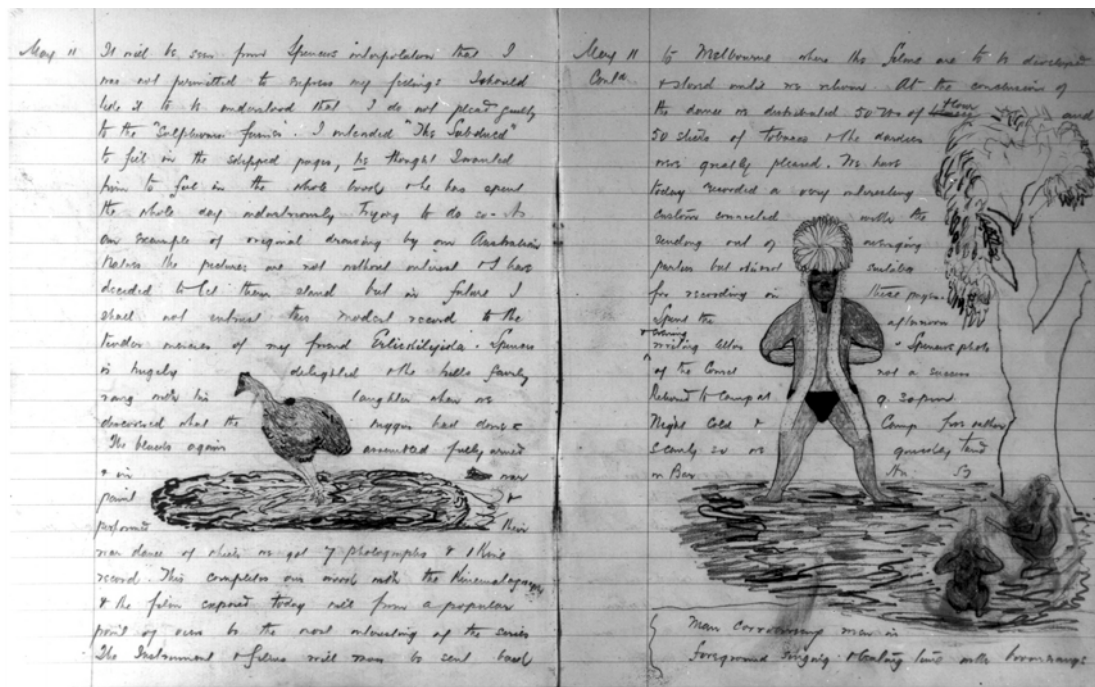 May 11
It will be seen from Spencer's interpolation that I
was not permitted to express my feelings I should
like it to be understood that I do not plead guilty
to the "Sulphurous furies". I intended "The Subdued"
to fill in the skipped pages, he thought I wanted
him to fill in the whole book & he has spent
the whole day industriously trying to do so - As
an example of original drawing by an Australian
Native the pictures are not without interest & I have
decided to let them stand but in future I
shall not entrust this modest record to the
tender mercies of my friend Erlikilyika. Spencer
is hugely delighted & the hills fairly
rang with his laughter when we
discovered what the nigger had done
The blacks again assembled fully armed
& in war
paint &
performed their
war dance of which we got 7 photographs & 1 Kine
record. This completes our work with the Kinematograph
& the film exposed today will from a popular
point of view be the most interesting of the series
The Instrument & films will now be sent back
May 11
Contd
to Melbourne where the films are to be developed
& stored until we return. At the conclusion of
the dance we distributed 50 lbs of flour and
50 sticks of tobacco & the dancers
were greatly pleased. We have
today recorded a very interesting
custom connected with the
sending out of avenging
parties but it is not suitable
for recording in these pages.
Spent the afternoon
& evening
writing letters Spencer's photo
of the Comet not a success
Returned to Camp at 9.30pm.
Night Cold & Camp fire rather
Scanty so we quickly turn
in Bar Ther 53
Man corroboreeing men in
foreground singing & beating time with boomerangs